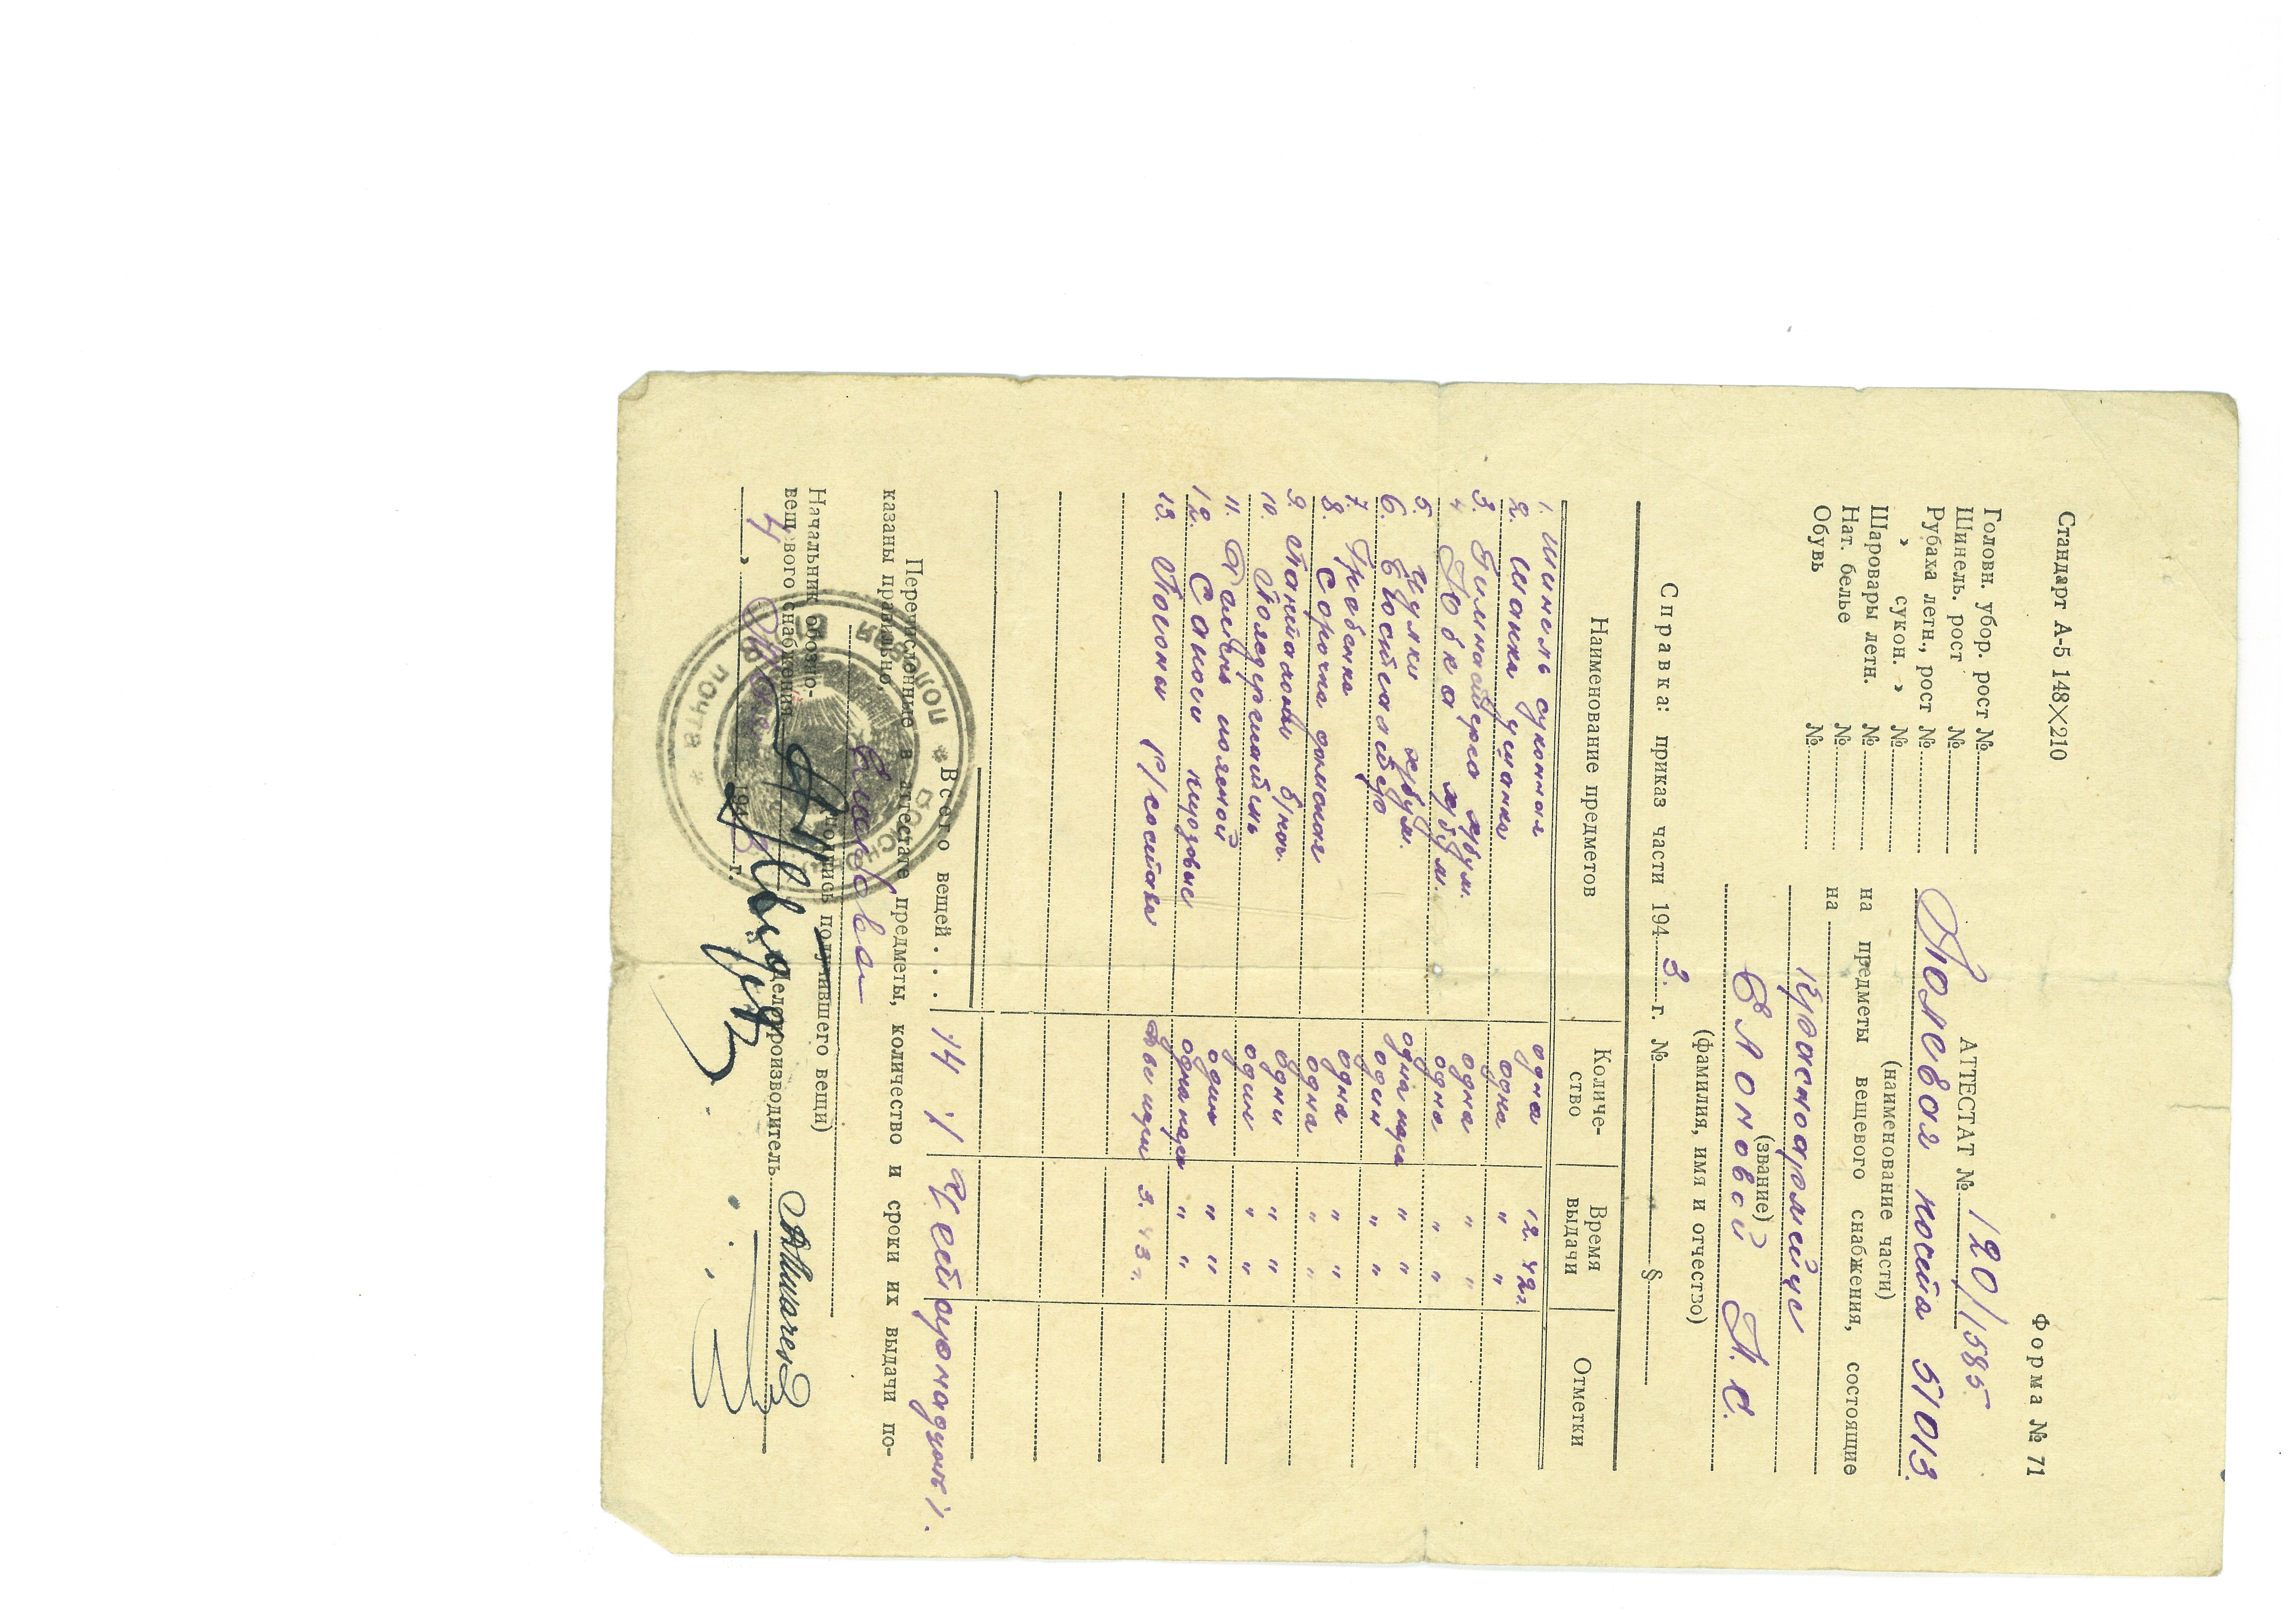 Стандарт А-5 148×210
Форма № 71
Головн. убор. рост №
Шинель. рост №
Рубаха летн., рост №
» сукон. » №
Шаровары летн. №
Нат. белье №
Обувь №
АТТЕСТАТ № 120/1585
Полевая почта 51013.
(наименование части)
на предметы вещевого снабжения, состоящие
на
красноармейце
(звание)
Еловой П. С.
(фамилия, имя и отчество)
Справка: приказ части 1943. г. № §
Наименование предметов Количество Время выдачи Отметки
1. Шинель суконная одна 12. 42 г.
2. Шапка ушанка одна " "
3. Гимнастерка х/бум. одна " "
4 Юбка х/бум. одна " "
5. Чулки х/бум. одна пара " "
6. Бюстгалтер один " "
7. Гребенка одна " "
8. Сорочка одна " "
9. Панталоны б/поч. одни " "
10. Полодержатель один " "
11. Ремень поясной один " "
12. Сапоги кирзовые одна пара " "
13. Погоны р/состава две пары 3. 43 г.
Всего вещей . . . 14 / Четырнадцать /.
Перечисленные в аттестате предметы, количество и сроки их выдачи по-
казаны правильно.
Начальник обозно-
вещевого снабжения
(подпись получившего вещи)
Делопроизводитель
4 » 1943 г.
ПОЛЕВАЯ ПОЧТА